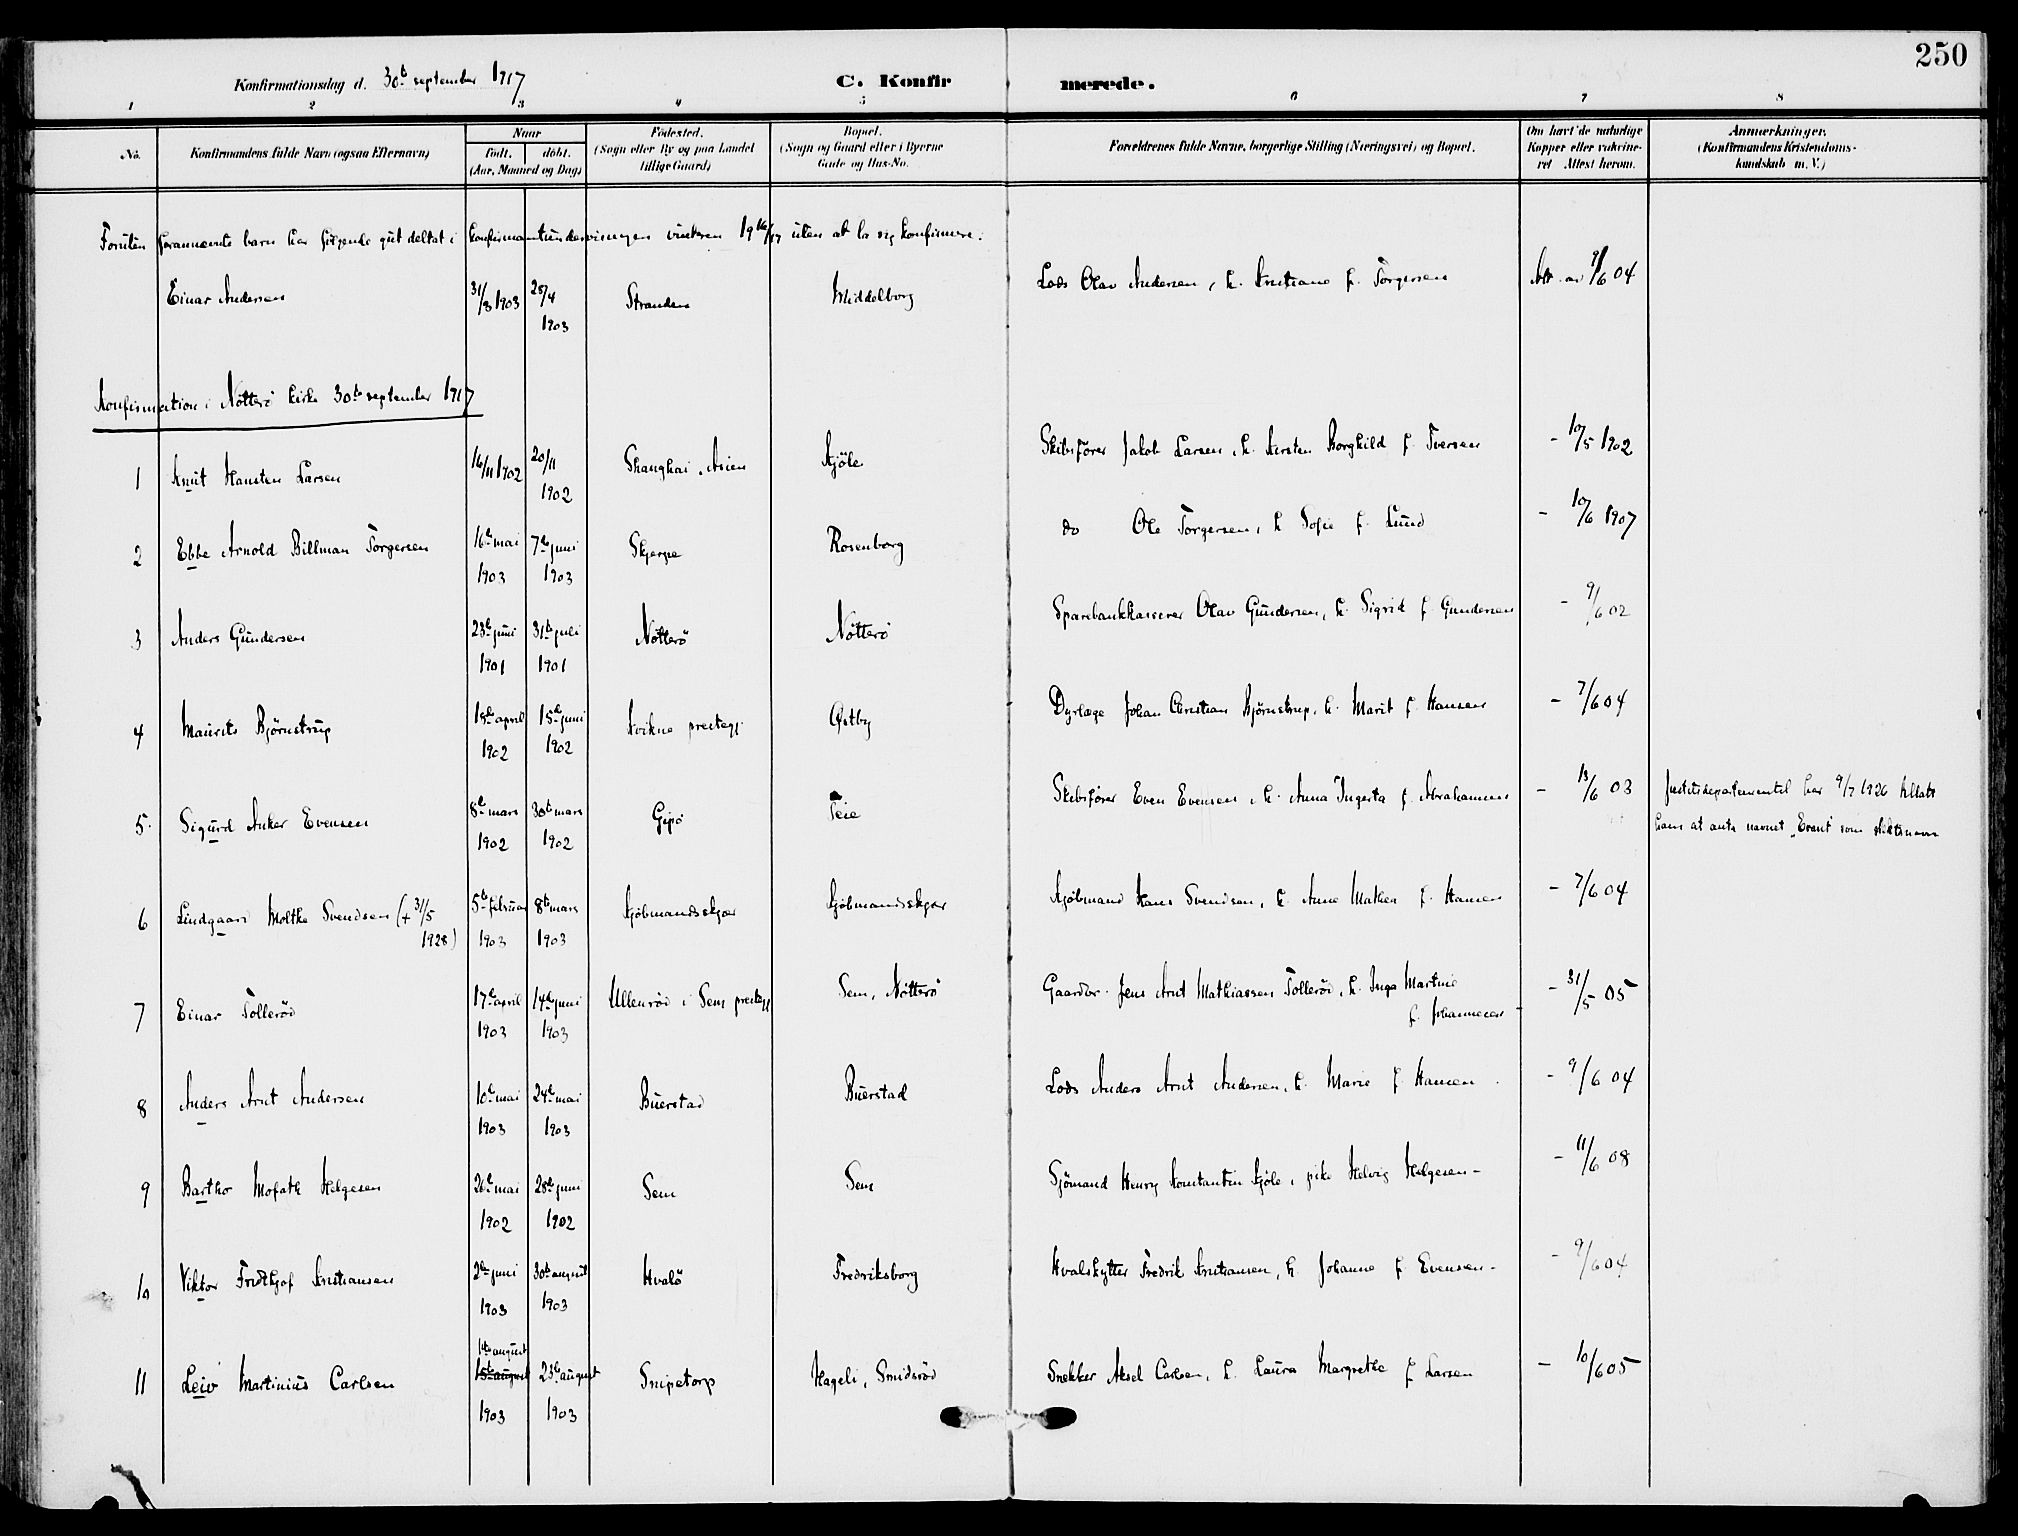 250
Konfirmationsdag d. 30te september 1917
C. Konfirmerede.
1 2 3 4 5 6 7 8
No. Konfirmandens fulde Navn (ogsaa Efternavn) Naar født. døbt. (Aar, Maaned og Dag) Fødested. (Sogn eller By og paa Landet tillige Gaard) Bopæl. (Sogn og Gaard eller i Byerne Gade og Hus-No. Forældrenes fulde Navne, borgerlige Stilling (Næringsvei) og Bopæl. Om havt de naturlige Kopper eller vakcineret Attest herom. Anmærkninger. (Konfirmandens Kristendomskundskab m. V.)
Foruten forannævnte barn har følgende gut deltat i konfirmantundervisningen vinteren 1916/17 uten at la sig konfirmere:
Einar Andersen 31/3 1903 25/4 1903 Stranden Middelborg Lods Olav Andersen, h. Kristiane f. Torgersen Att. av 9/6 04
Konfirmation i Nötterö kirke 30te september 1917
1 Knut Hansten Larsen 16/11 1902 20/11 1902 Shanghai, Asien Kjöle Skibsförer Jakob Larsen, h. Kirsten Borghild f. Iversen - 10/5 1902
2 Ebbe Arnold Billman Torgersen 16de mai 1903 7de juni 1903 Skjerpe Rosenborg do Ole Torgersen, h. Sofie f. Lund - 10/6 1907
3 Anders Gundersen 23de juni 1901 31te juli 1901 Nötterö Nötterö Sparebankkasserer Olav Gundersen, h. Sigrid f. Gundersen - 9/6 02
4 Maurits Björnstrup 18de april 1902 15de juni 1902 Kvikne prestegj. Østby Dyrlæge Johan Christian Björnstrup, h. Marit f. Hansen - 7/6 04
5 Sigurd Anker Evensen 8de mars 1902 30te mars 1902 Gipö Teie Skibsförer Even Evensen, h. Anna Ingerta f. Abrahamsen - 13/6 03 Justisdepartementet har 9/7 1926 tillatt ham at anta navnet "Evant" som slektsnavn
6 Lindgaard Moltke Svendsen (+ 31/5 1928) 5te februar 1903 8de mars 1903 Kjöbmandsskjær Kjöbmandsskjær Kjöbmand Hans Svendsen, h. Anne Mathea f. Hansen - 7/6 04
7 Einar Tolleröd 17de april 1903 14de juni 1903 Ullenröd i Sem prestegj Sem, Nötterö Gaardbr. Jens Arnt Mathiassen Tolleröd, h. Inga Martine f. Johannesen - 31/5 05
8 Anders Arnt Andersen 10de mai 1903 24de mai 1903 Buerstad Buerstad Lods Anders Arnt Andersen, h. Marie f. Hansen - 9/6 04
9 Bartho Mofath Helgesen 26de mai 1902 28de juni 1902 Sem Sem Sjömand Henry Konstantin Kjöle, pike Helvig Helgesen - - 11/6 08
10 Viktor Fridthjof Kristiansen 2de juni 1903 30te august 1903 Hvalö Fredriksborg Hvalskytter Fredrik Kristiansen, h. Johanne f. Evensen - - 9/6 04
11 Leiv Martinius Carlsen 1ste august 1903 23de august 1903 Snipetorp Hageli, Smidsröd Snekker Aksel Carlsen, h. Laura Margrethe f. Larsen - 10/6 05